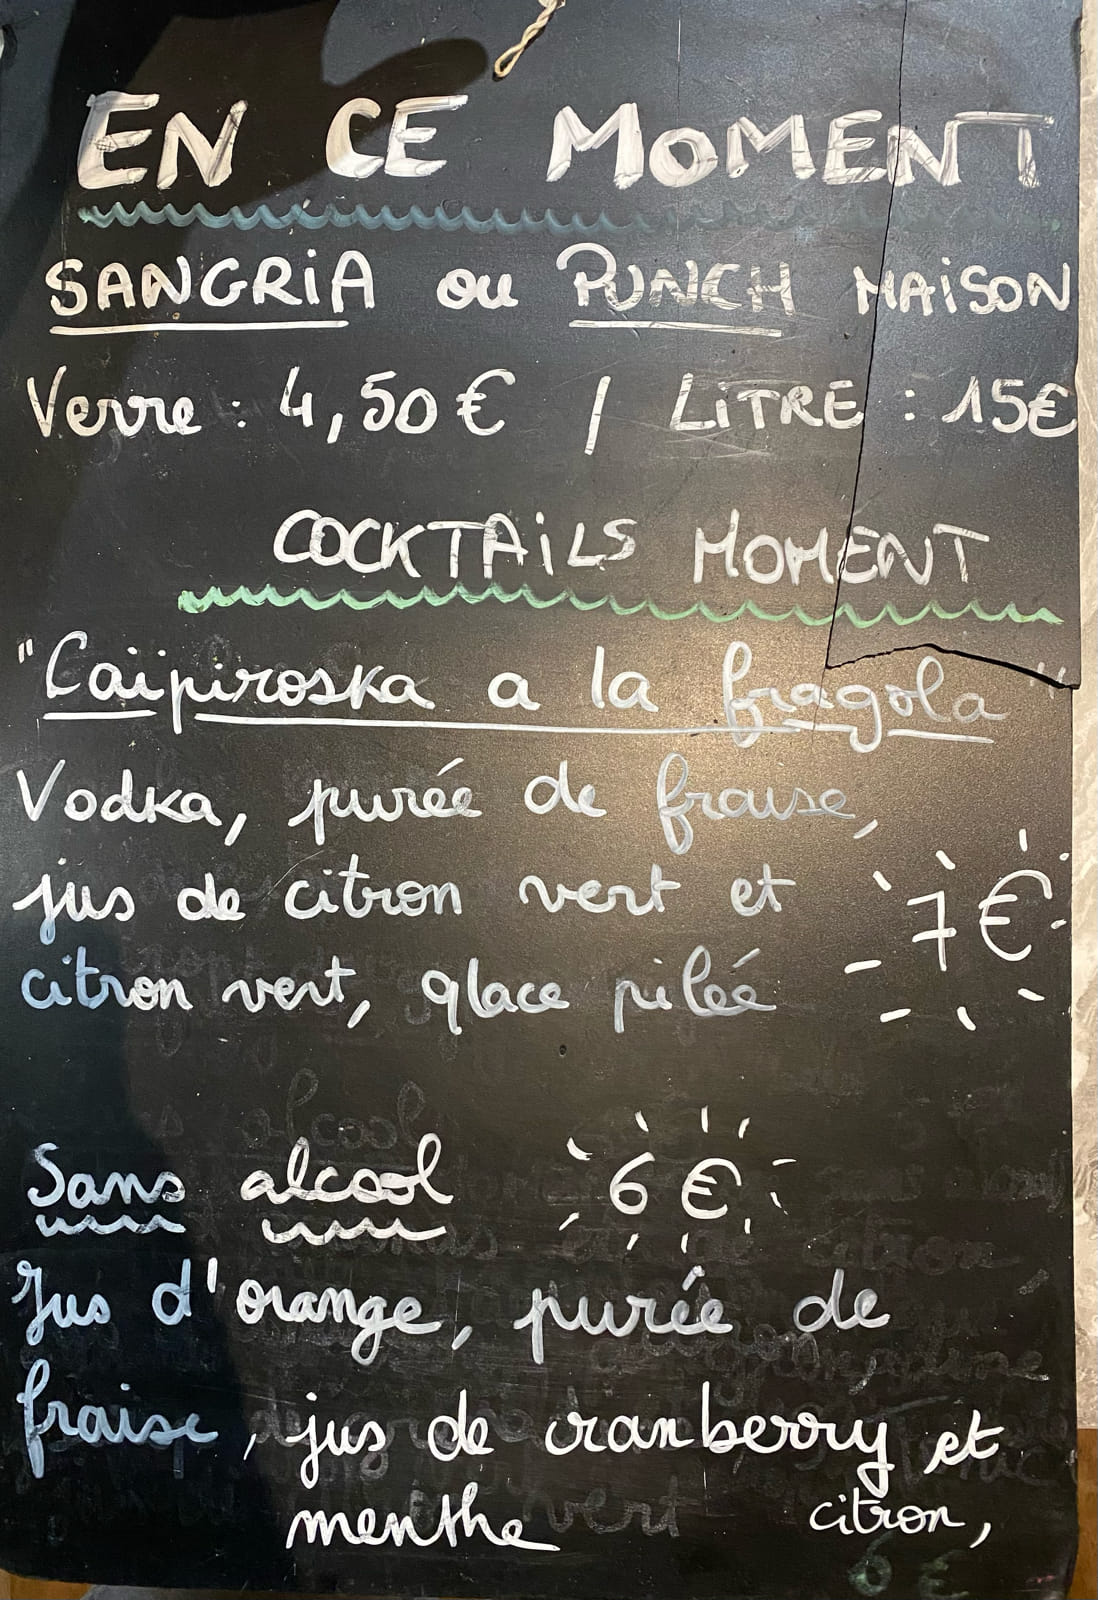 EN CE MOMENT
SANGRiA ou PUNCH MAiSON
Verre : 4,50€ / LiTRE : 15€
COCKTAiLS MOMENT
"Caïpiroska a la fragola"
Vodka, purée de fraise,
jus de citron vert et
7€
citron vert, glace pilée
Sans alcool 6€
Jus d'orange, purée de
fraise, jus de cranberry et
menthe citron,
6 €